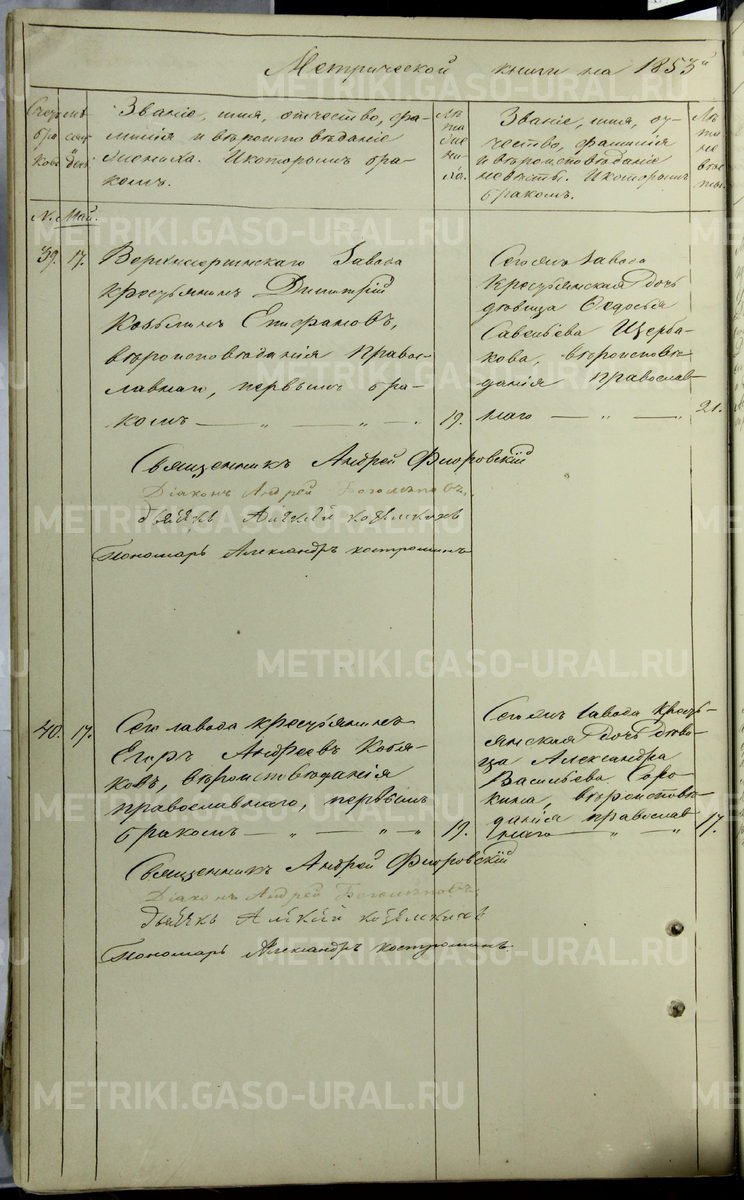 Метрической книги на 1853й
Счетъ бра ковъ
Мѣ сяцъ и день
Званіе, имя, отчество, фа-
милія и вѣроисповѣданіе
жениха. И которымъ бра-
комъ.
Лѣ
та
же
ни-
ха.
Званіе, имя, от-
чество, фамилія
и вѣроисповѣданіе
невѣсты. И которымъ
бракомъ.
Лѣ
та
не
вѣс
ты.
N. Май.
39. 17.
завода
крестьянинъ Димитрій
Епифановъ,
вѣроисповѣданія право-
славнаго, первымъ бра-
комъ — „ — „ — 19.
Сегоже завода
крестьянская дочь
дѣвица Ѳедосья
Савельева Щерба-
кова, вѣроисповѣ-
данія православ-
наго — „ — „ — 21.
Священникъ Андрей Флоровскій
Діаконъ Андрей
Дьячекъ
Пономарь Александръ Костроминъ
40. 17.
Сего завода крестьянинъ
Егоръ Андреевъ Кобя-
ковъ, вѣроисповѣданія
православнаго, первымъ
бракомъ — „ — „ — 19.
Сегоже завода кресть-
янская дочь дѣви-
ца Александра
Васильева Соро-
кина, вѣроисповѣ-
данія православ
наго — „ — „ 17.
Священникъ Андрей Флоровскій
Діаконъ Андрей
Дьячекъ
Пономарь Александръ Костроминъ.
METRIKI.GASO-URAL.RU